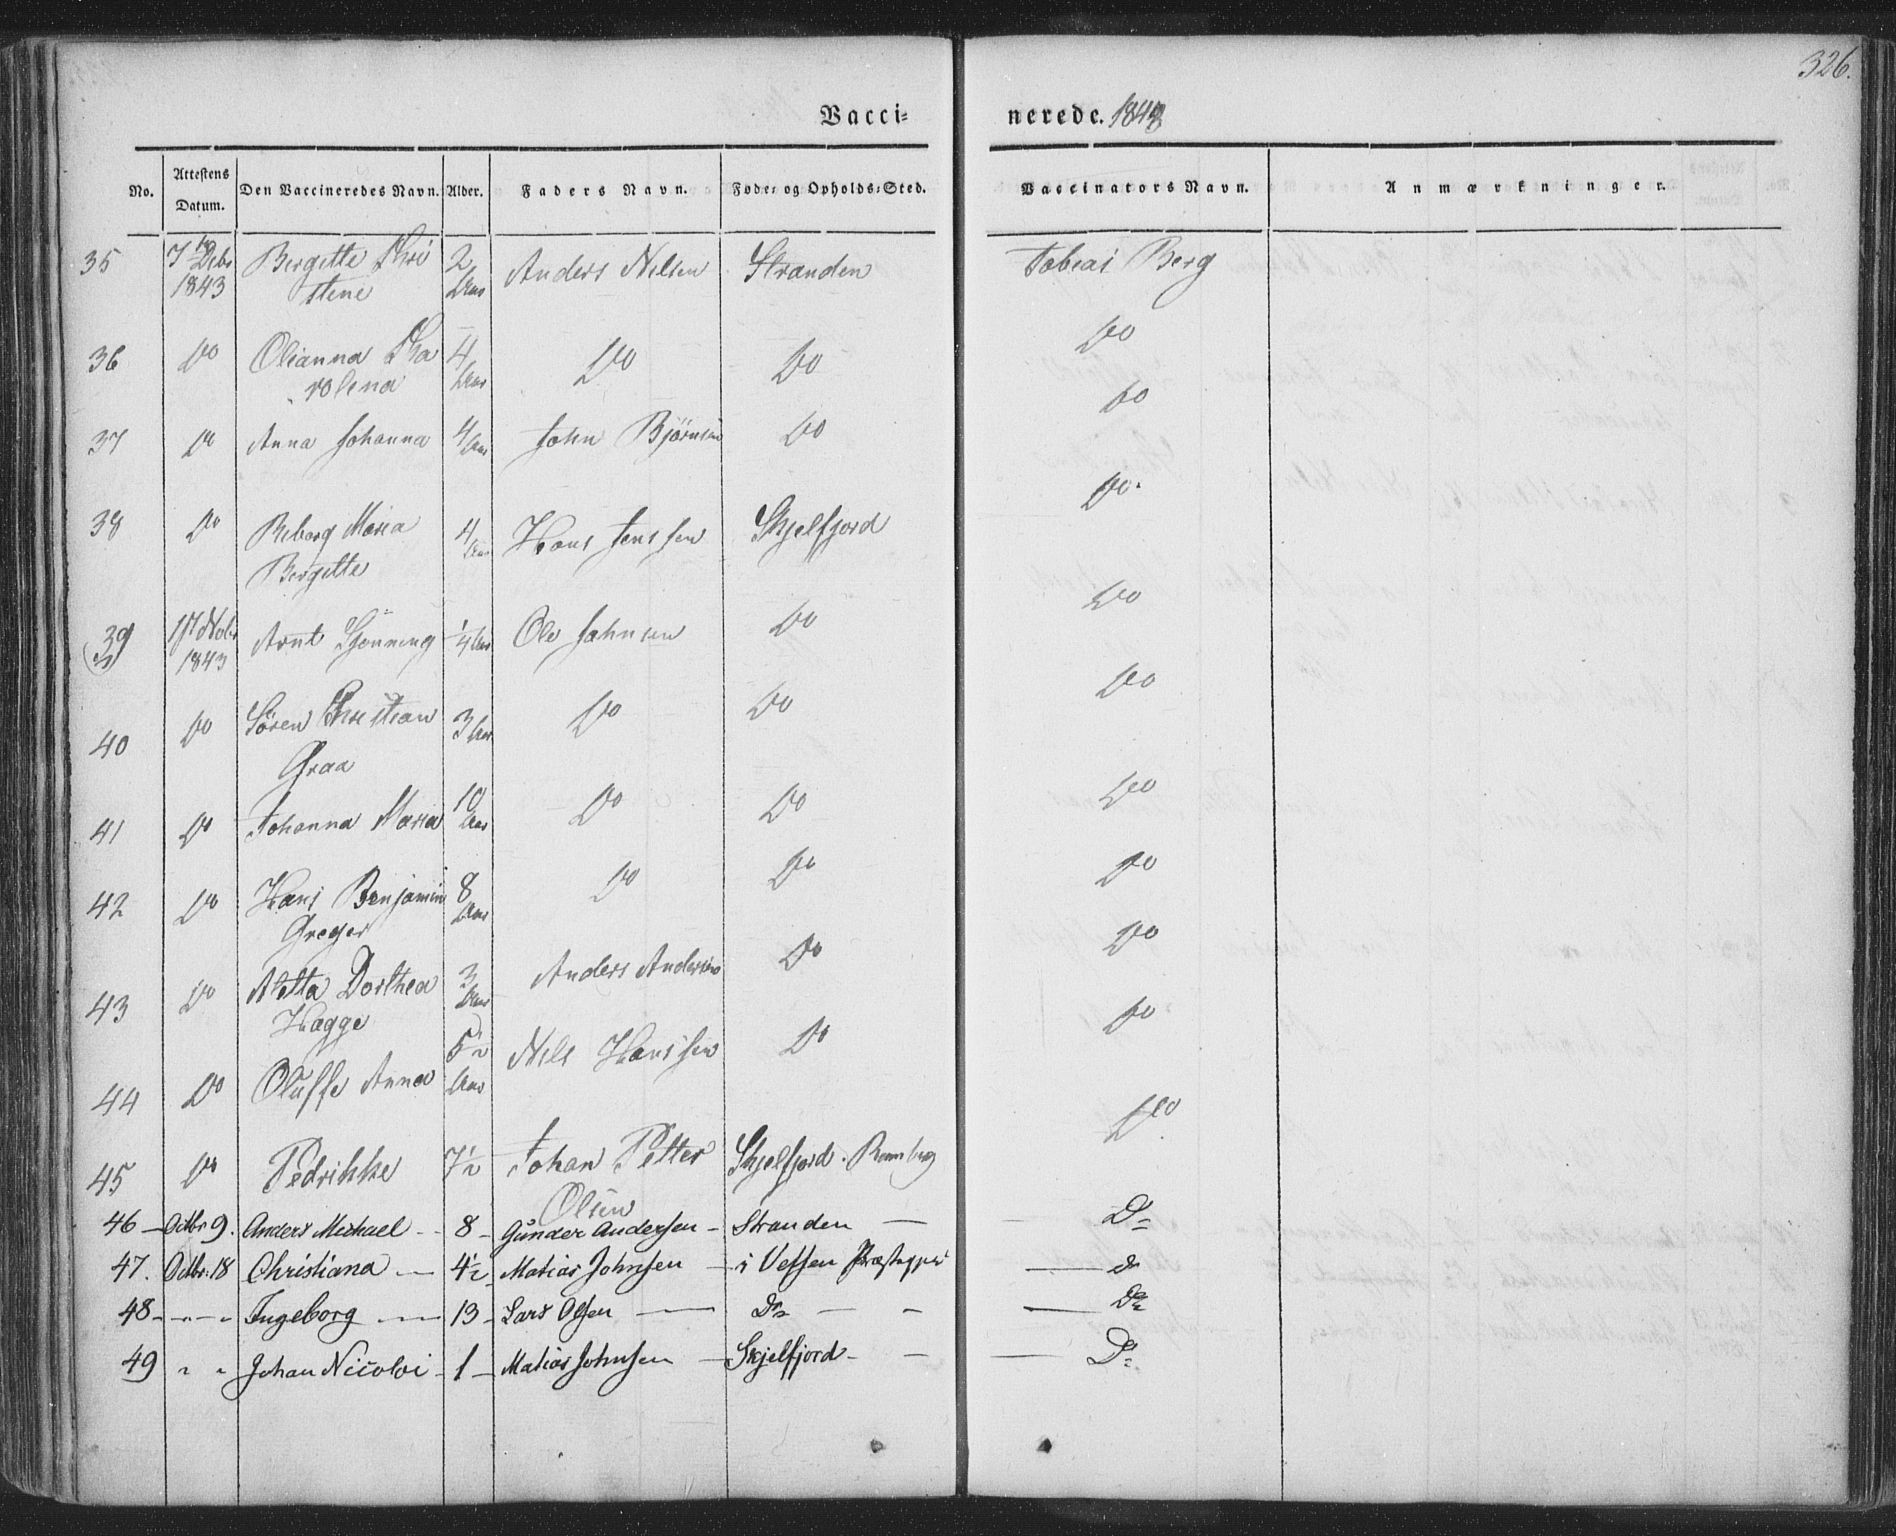 326.
Vacci= nerede. 1843
No. Attestens Datum. Den Vaccineredes Navn. Alder. Faders Navn. Føde= og Opholds=Sted. Vaccinators Navn. Anmærkninger.
35 7 Debr 1843 Bergitte Chri 2 Aar Anders Nilsen Stranden Tobias Berg
stene
36 Do Olianna Cha 4 Aar Do Do Do
rolena
37 Do Anna Johanna 4 Aar John Bjørnsen Do Do
38 Do Reborg Maria 4 Aar Hans Jenssen Skjelfjord Do
Bergitte
39 17 Nobr 1843 Arnt Schjønning 1/4 Aar Ole Johnsen Do Do
40 Do Søren Christian 3 Aar Do Do Do
Graa
41 Do Johanna Maria 10 Aar Do Do Do
42 Do Hans Benjamin 8 Aar Do Do Do
Greger
43 Do Aletta Dorthea 3 Aar Anders Andersen Do Do
Hagge
44 Do Oluffe Anna 5 1/2 Aar Nils Hanssen Do Do
45 Do Pedrikke 7 1/2 Johan Petter Skjelfjord. Ramberg Do
Olsen
46 — Octbr 9. Anders Michael - - 8 - Gunder Andersen - Stranden — Do
47. Octbr. 18 Christiana — 4 1/2 - Matias Johnsen - i Vefsen Præstegjel — do
48 - - " - " Ingeborg — 13 - Lars Olsen — Do — - — Do
49 " " Johan Nicolai - 1 - Matias Johnsen - Skjelfjord - - — Do